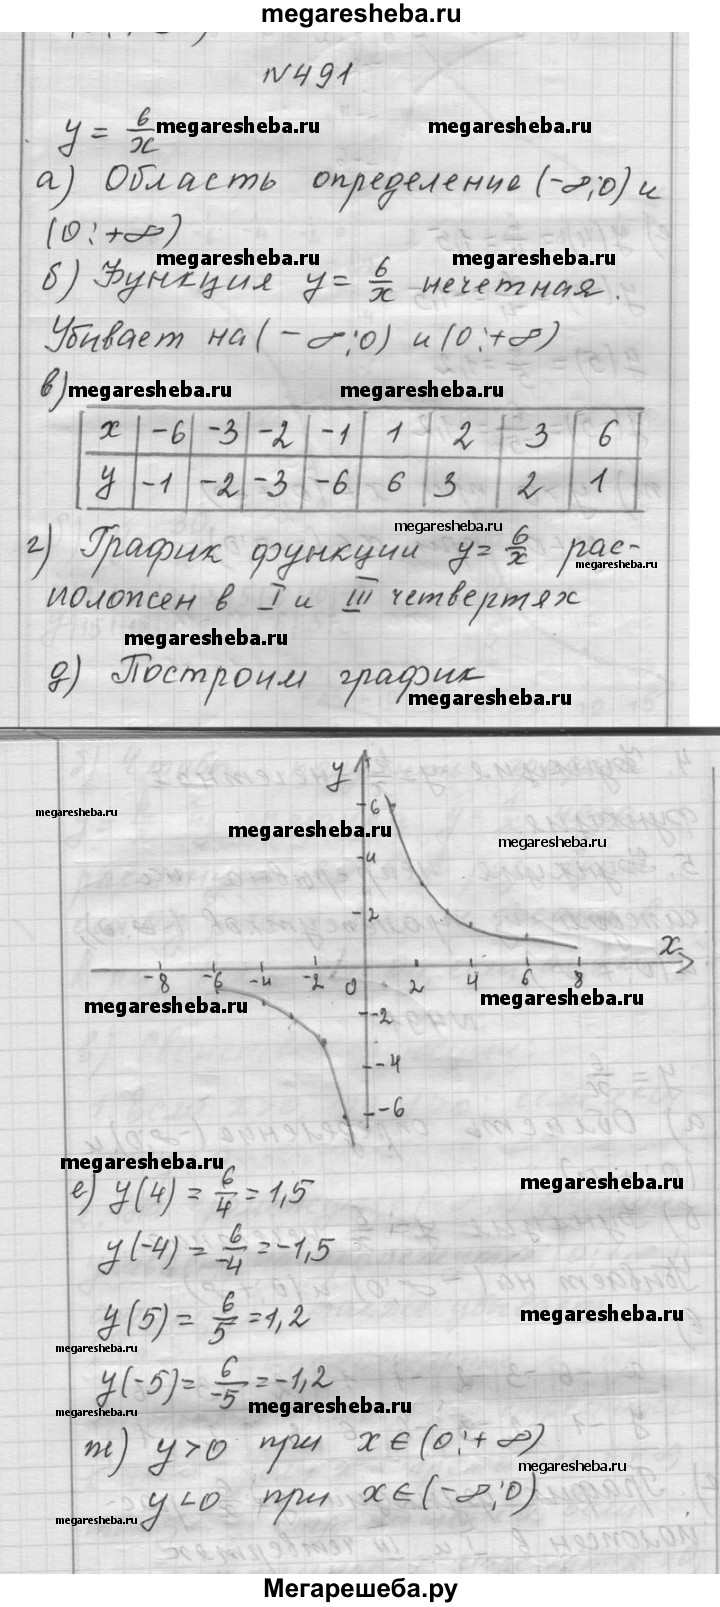 megaresheba.ru
N491
y = 6/x megaresheba.ru megaresheba.ru
а) Область определение (-∞;0) и
(0;+∞)
megaresheba.ru megaresheba.ru
б) Функция y = 6/x нечетная.
Убивает на (-∞;0) и (0;+∞)
в) megaresheba.ru megaresheba.ru
x -6 -3 -2 -1 1 2 3 6
y -1 -2 -3 -6 6 3 2 1
megaresheba.ru
г) График функции y = 6/x рас-
megaresheba.ru
положен в I и III четвертях
megaresheba.ru
д) Построим график
megaresheba.ru
y
6
megaresheba.ru
megaresheba.ru
megaresheba.ru
4
2
x
-8 -6 -4 -2 0 2 4 6 8
megaresheba.ru megaresheba.ru
-2
-4
-6
megaresheba.ru
е) y(4) = 6/4 = 1,5
megaresheba.ru
y(-4) = 6/-4 = -1,5
y(5) = 6/5 = 1,2
megaresheba.ru
megaresheba.ru
y(-5) = 6/-5 = -1,2
megaresheba.ru
megaresheba.ru
ж) y>0 при x∈(0;+∞)
megaresheba.ru
y<0 при x∈(-∞;0)
megaresheba.ru
Мегарешеба.ру